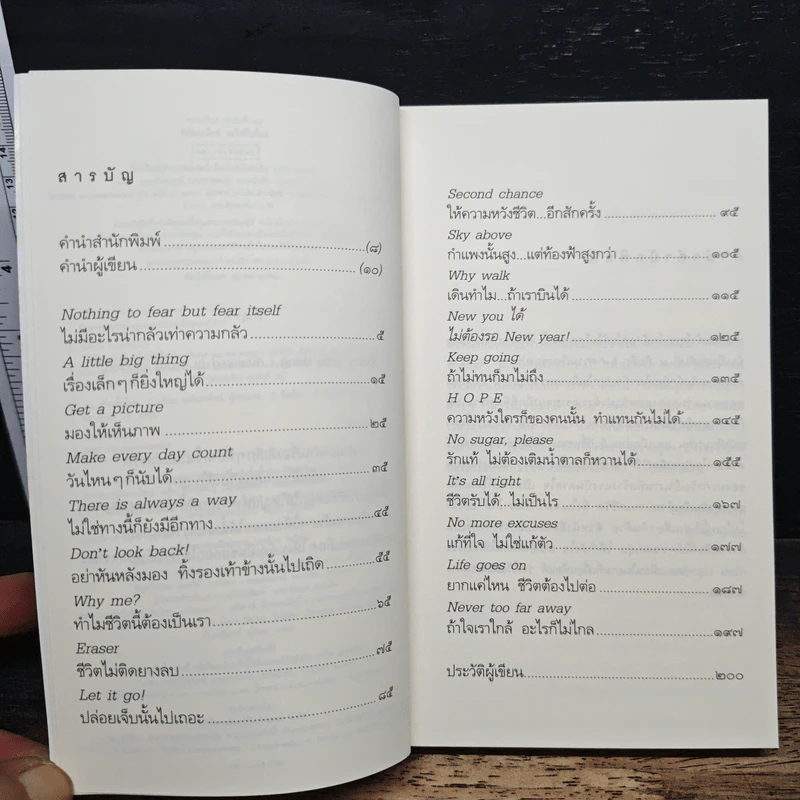 สารบัญ
คำนำสำนักพิมพ์ (๘)
คำนำผู้เขียน (๑๐)
Nothing to fear but fear itself
ไม่มีอะไรน่ากลัวเท่าความกลัว ๕
A little big thing
เรื่องเล็กๆ ก็ยิ่งใหญ่ได้ ๑๕
Get a picture
มองให้เห็นภาพ ๒๕
Make every day count
วันไหนๆ ก็นับได้ ๓๕
There is always a way
ไม่ใช่ทางนี้ก็ยังมีอีกทาง ๔๕
Don't look back!
อย่าหันหลังมอง ทิ้งรองเท้าข้างนั้นไปเถิด ๕๕
Why me?
ทำไมชีวิตนี้ต้องเป็นเรา ๖๕
Eraser
ชีวิตไม่ติดยางลบ ๗๕
Let it go!
ปล่อยเจ็บนั้นไปเถอะ ๘๕
Second chance
ให้ความหวังชีวิต...อีกสักครั้ง ๙๕
Sky above
กำแพงนั้นสูง...แต่ท้องฟ้าสูงกว่า ๑๐๕
Why walk
เดินทำไม...ถ้าเราบินได้ ๑๑๕
New you ได้
ไม่ต้องรอ New year! ๑๒๕
Keep going
ถ้าไม่ทนก็มาไม่ถึง ๑๓๕
H O P E
ความหวังใครก็ของคนนั้น ทำแทนกันไม่ได้ ๑๔๕
No sugar, please
รักแท้ ไม่ต้องเติมน้ำตาลก็หวานได้ ๑๕๕
It's all right
ชีวิตรับได้...ไม่เป็นไร ๑๖๗
No more excuses
แก้ที่ใจ ไม่ใช่แก้ตัว ๑๗๗
Life goes on
ยากแค่ไหน ชีวิตต้องไปต่อ ๑๘๗
Never too far away
ถ้าใจเราใกล้ อะไรก็ไม่ไกล ๑๙๗
ประวัติผู้เขียน ๒๐๐
14
13
12
4